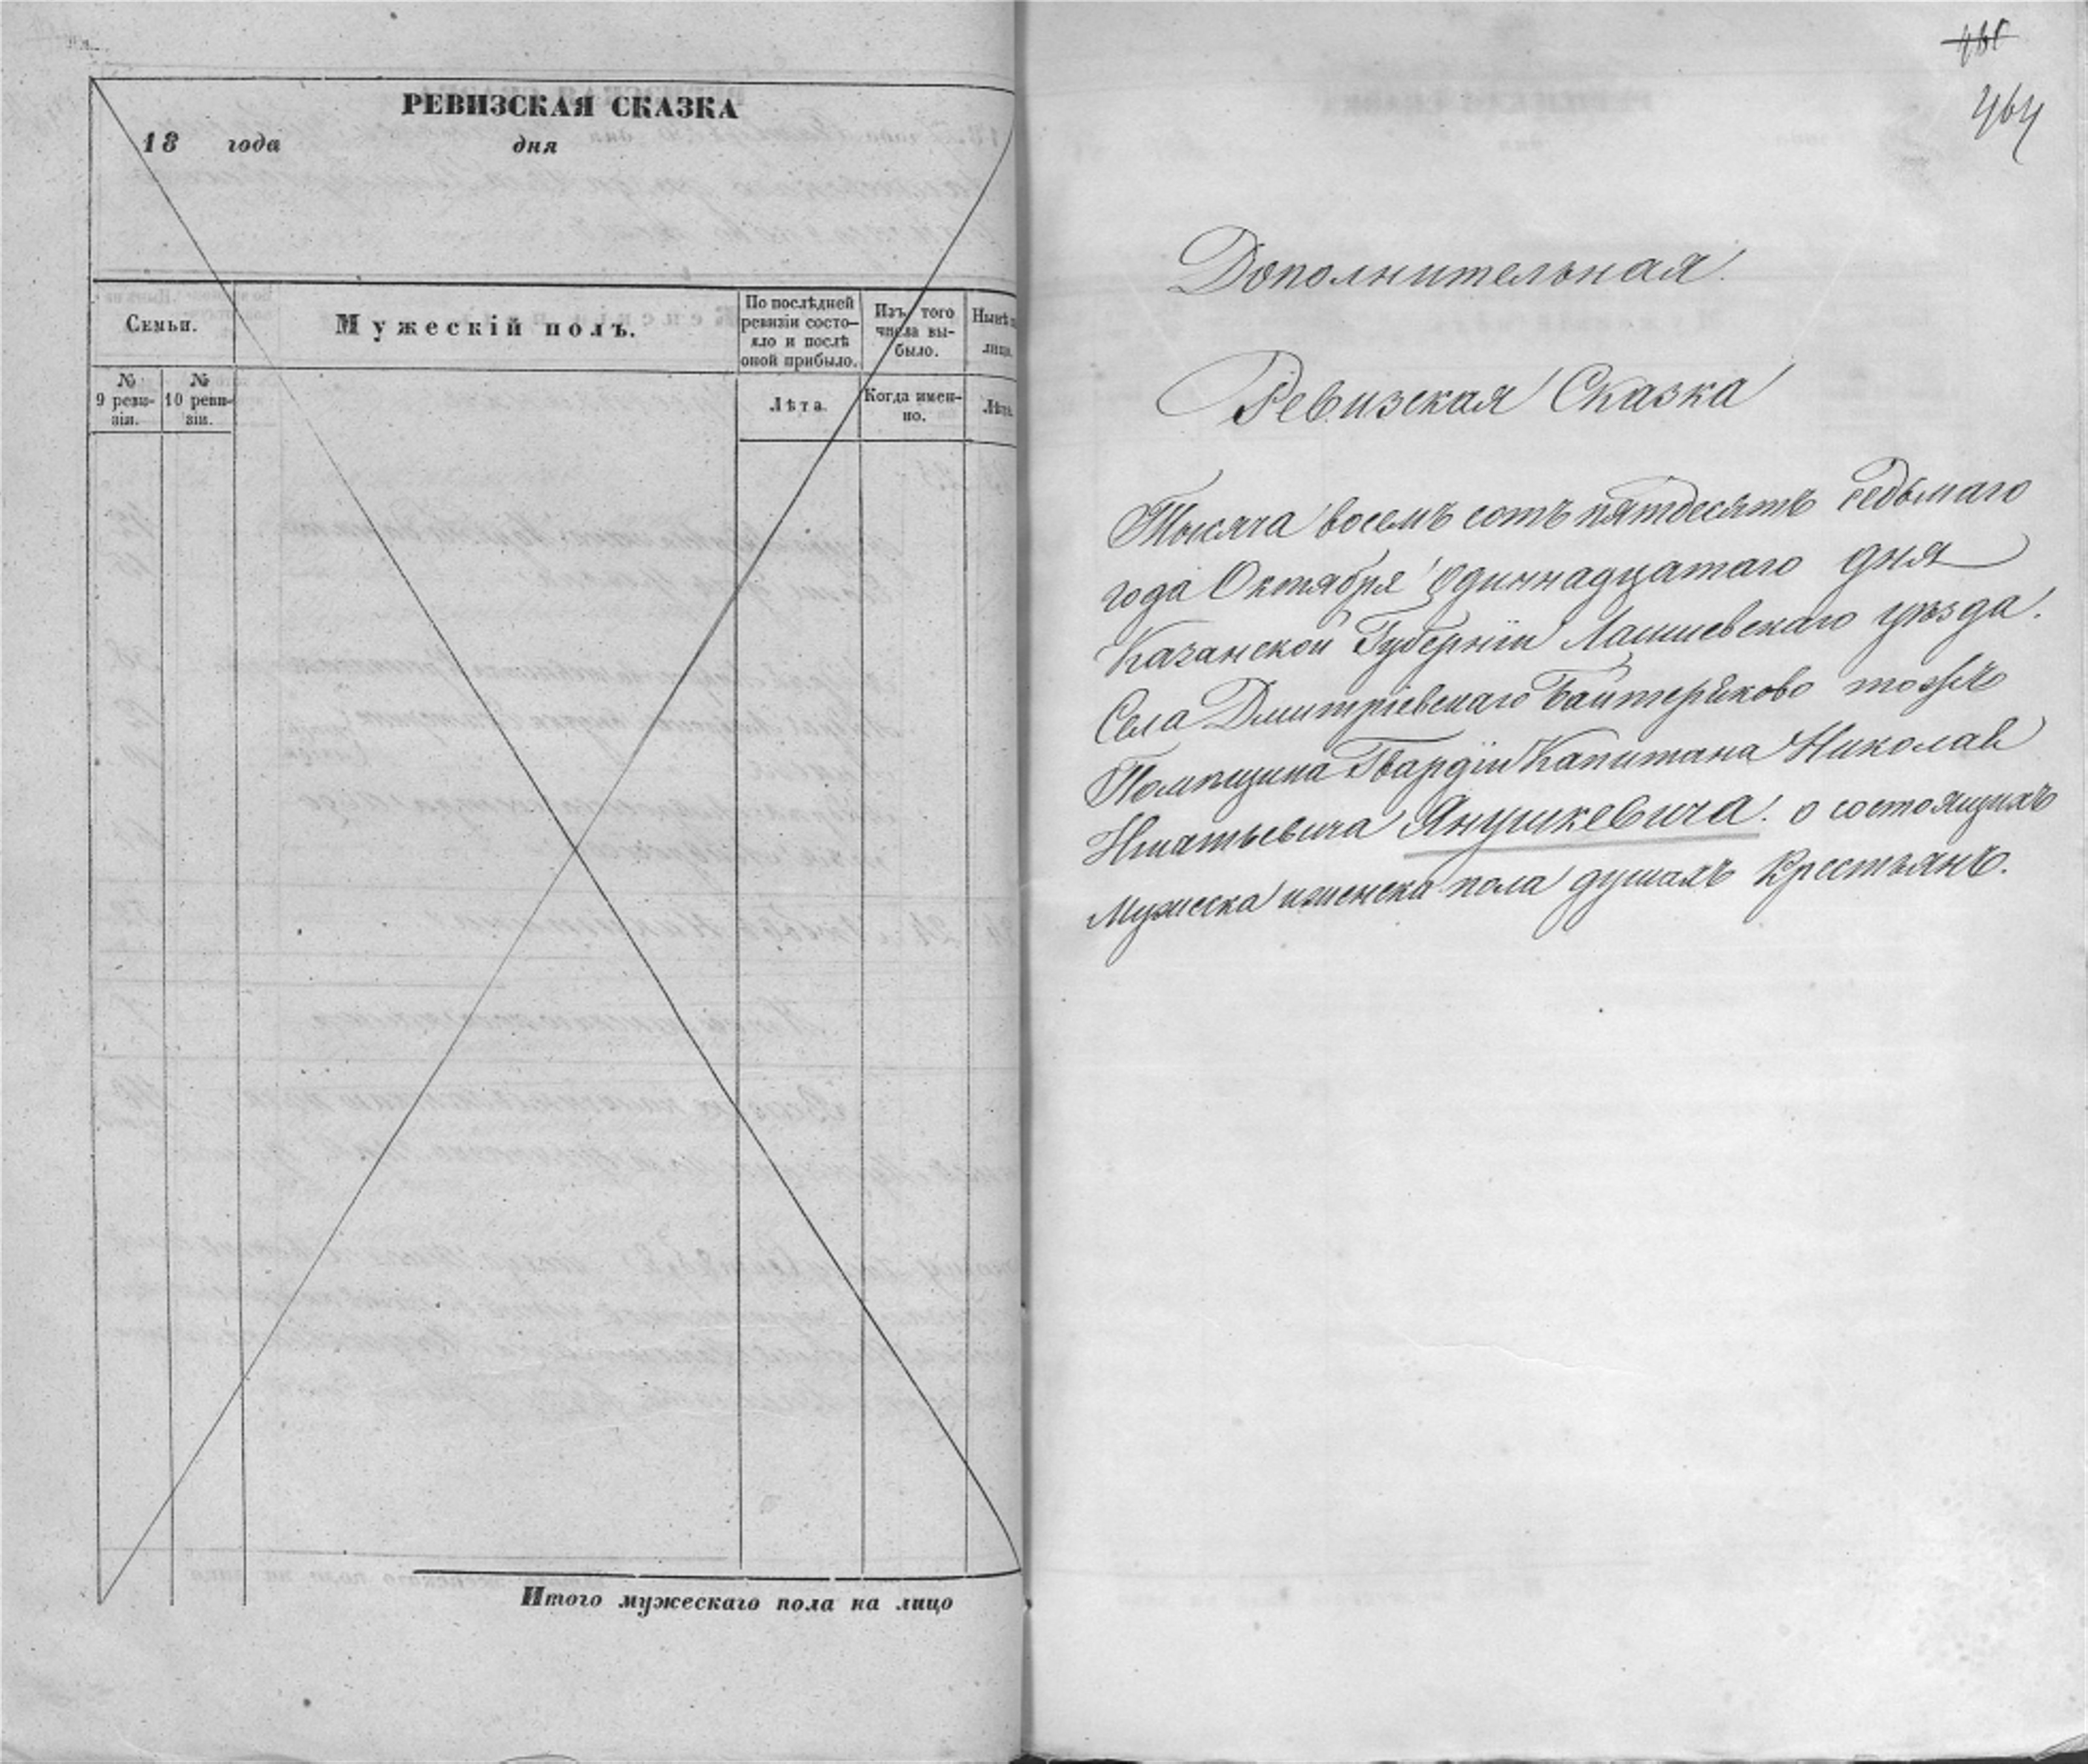 РЕВИЗСКАЯ СКАЗКА
18 года дня
Семьи.
Мужескій полъ.
По послѣдней ревизіи состо-
яло и послѣ
оной прибыло.
Изъ того
числа вы-
было.
Нынѣ
лицо.
№
9 реви-
зіи.
№
10 реви-
зіи.
Лѣта.
Когда имен-
но.
Лѣта.
Итого мужескаго пола на лицо
464
Дополнительная.
Ревизская Сказка
Тысяча восемь сотъ пятдесятъ седьмаго
года Октября одиннадцатаго дня
Казанской Губерніи Лаишевскаго уѣзда.
Села Дмитріевскаго Байтеряково тожъ
Помѣщика Гвардіи Капитана Николая
Игнатьевича Янушкевича. о состоящихъ
Мужеска и женска пола душахъ Крестьянъ.